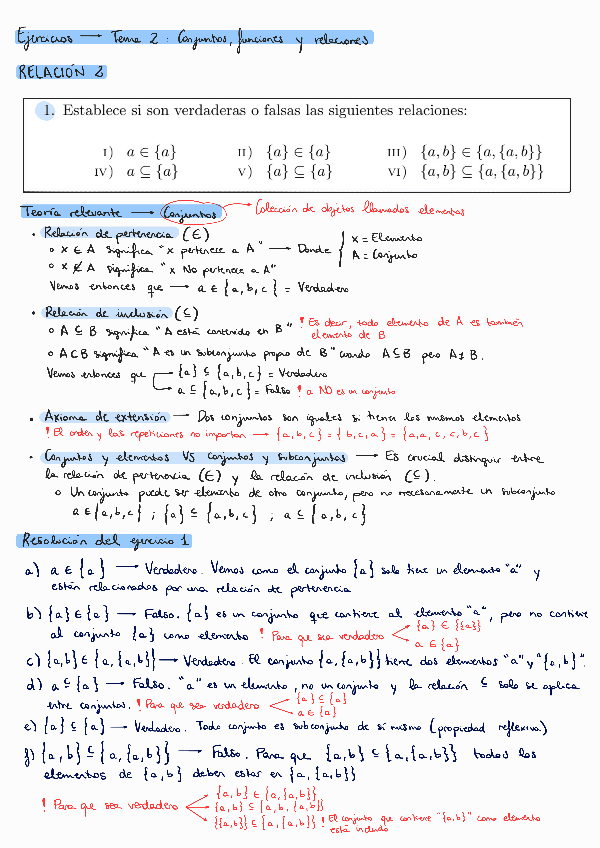 Ejercicios → Tema 2: Conjuntos, funciones y relaciones
RELACIÓN 2
1. Establece si son verdaderas o falsas las siguientes relaciones:
I) a ∈ {a} II) {a} ∈ {a} III) {a, b} ∈ {a, {a, b}}
IV) a ⊆ {a} V) {a} ⊆ {a} VI) {a, b} ⊆ {a, {a, b}}
Teoría relevante → Conjuntos → Colección de objetos llamados elementos
• Relación de pertenencia (∈)
○ x ∈ A significa "x pertenece a A" → Donde { x = Elemento
○ x ∉ A significa "x No pertenece a A" A = Conjunto
Vemos entonces que → a ∈ {a, b, c} = Verdadero
• Relación de inclusión (⊆)
○ A ⊆ B significa "A está contenido en B" ! Es decir, todo elemento de A es también
elemento de B
○ A ⊂ B significa "A es un subconjunto propio de B" cuando A ⊆ B pero A ≠ B.
Vemos entonces que → {a} ⊆ {a, b, c} = Verdadero
→ a ⊆ {a, b, c} = Falso ! a NO es un conjunto
• Axioma de extensión → Dos conjuntos son iguales si tienen los mismos elementos
! El orden y las repeticiones no importan → {a, b, c} = {b, c, a} = {a, a, c, c, b, c}
• Conjuntos y elementos VS conjuntos y subconjuntos → Es crucial distinguir entre
la relación de pertenencia (∈) y la relación de inclusión (⊆).
○ Un conjunto puede ser elemento de otro conjunto, pero no necesariamente un subconjunto
a ∈ {a, b, c} ; {a} ⊆ {a, b, c} ; a ⊆ {a, b, c}
Resolución del ejercicio 1
a) a ∈ {a} → Verdadero. Vemos como el conjunto {a} solo tiene un elemento "a" y
están relacionados por una relación de pertenencia
b) {a} ∈ {a} → Falso. {a} es un conjunto que contiene al elemento "a", pero no contiene
al conjunto {a} como elemento ! Para que sea verdadero {a} ∈ {{a}}
a ∈ {a}
c) {a,b} ∈ {a, {a,b}} → Verdadero. El conjunto {a, {a,b}} tiene dos elementos "a" y "{a, b}".
d) a ⊆ {a} → Falso. "a" es un elemento, no un conjunto y la relación ⊆ solo se aplica
entre conjuntos. ! Para que sea verdadero {a} ⊆ {a}
a ∈ {a}
e) {a} ⊆ {a} → Verdadero. Todo conjunto es subconjunto de sí mismo (propiedad reflexiva)
f) {a, b} ⊆ {a, {a, b}} → Falso. Para que {a, b} ⊆ {a, {a, b}} todos los
elementos de {a, b} deben estar en {a, {a, b}}
! Para que sea verdadero {a, b} ∈ {a, {a, b}}
{a, b} ⊆ {a, b, {a, b}}
{{a, b}} ⊆ {a, {a, b}} ! El conjunto que contiene "{a,b}" como elemento
está incluido